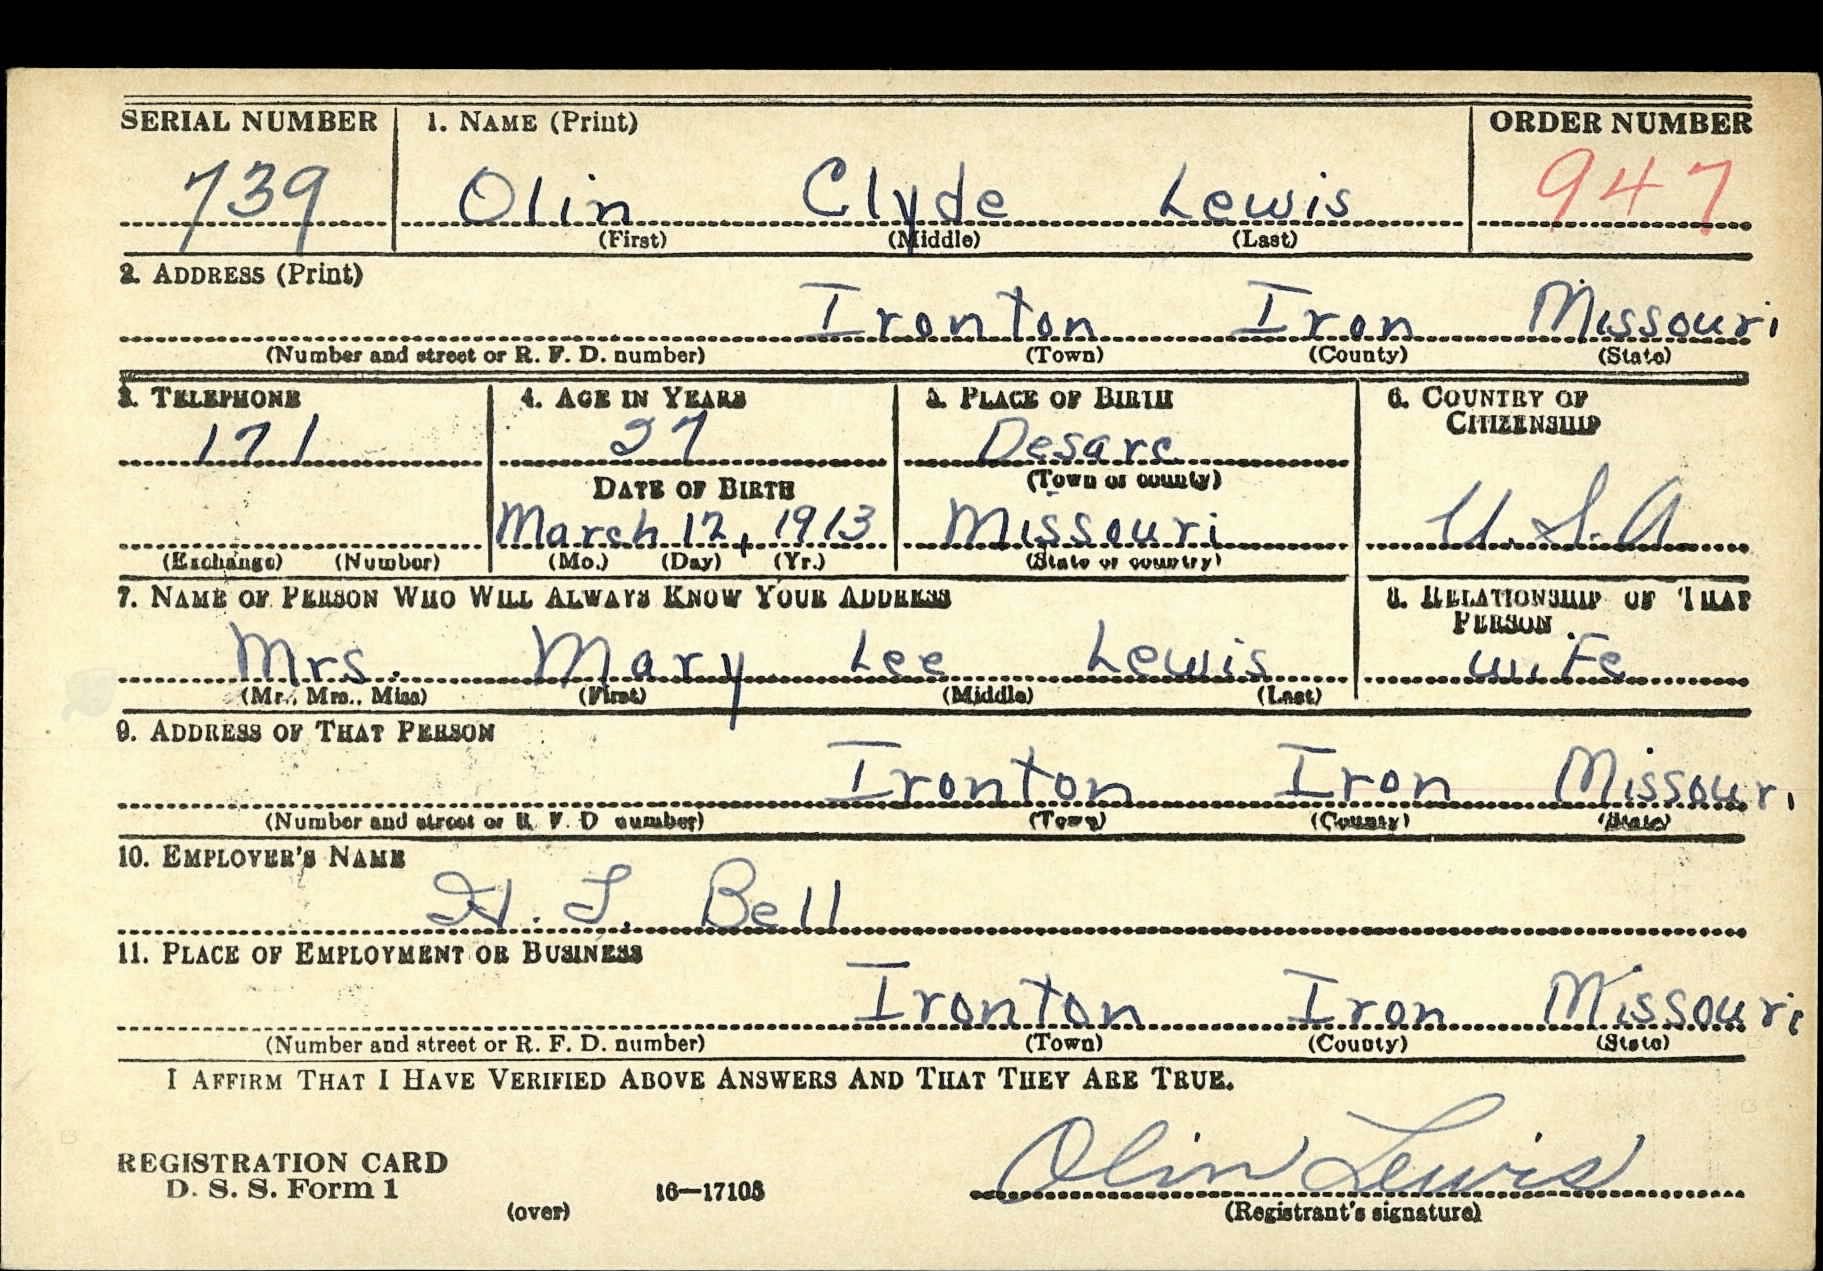 SERIAL NUMBER 1. NAME (Print) ORDER NUMBER
739 Olin Clyde Lewis 947
(First) (Middle) (Last)
2. ADDRESS (Print)
Ironton Iron Missouri
(Number and street or R. F. D. number) (Town) (County) (State)
3. TELEPHONE 4. AGE IN YEARS 5. PLACE OF BIRTH 6. COUNTRY OF
CITIZENSHIP
171 27 Desarc
DATE OF BIRTH (Town or county)
March 12, 1913 Missouri U.S.A
(Exchange) (Number) (Mo.) (Day) (Yr.) (State or country)
7. NAME OF PERSON WHO WILL ALWAYS KNOW YOUR ADDRESS 8. RELATIONSHIP OF THAT
PERSON
Mrs. Mary Lee Lewis wife
(Mr., Mrs., Miss) (First) (Middle) (Last)
9. ADDRESS OF THAT PERSON
Ironton Iron Missouri
(Number and street or R. F. D number) (Town) (County) (State)
10. EMPLOYER'S NAME
H. I. Bell
11. PLACE OF EMPLOYMENT OR BUSINESS
Ironton Iron Missouri
(Number and street or R. F. D. number) (Town) (County) (State)
I AFFIRM THAT I HAVE VERIFIED ABOVE ANSWERS AND THAT THEY ARE TRUE.
REGISTRATION CARD Olin Lewis
D. S. S. Form 1 16—17105
(over) (Registrant's signature)